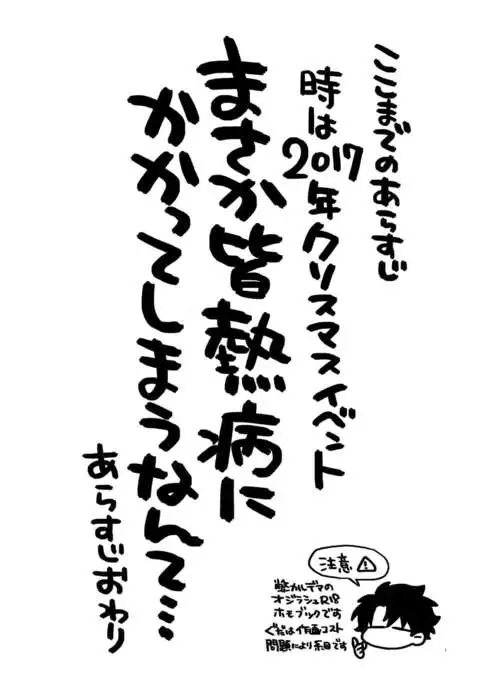 ここまでのあらすじ
時は2017年クリスマスイベント
まさか皆熱病に
かかってしまうなんて…
あらすじおわり
注意⚠
弊カルデアの
オジラシュR18
ホモブックです
ぐだは作画コスト
問題により糸目です